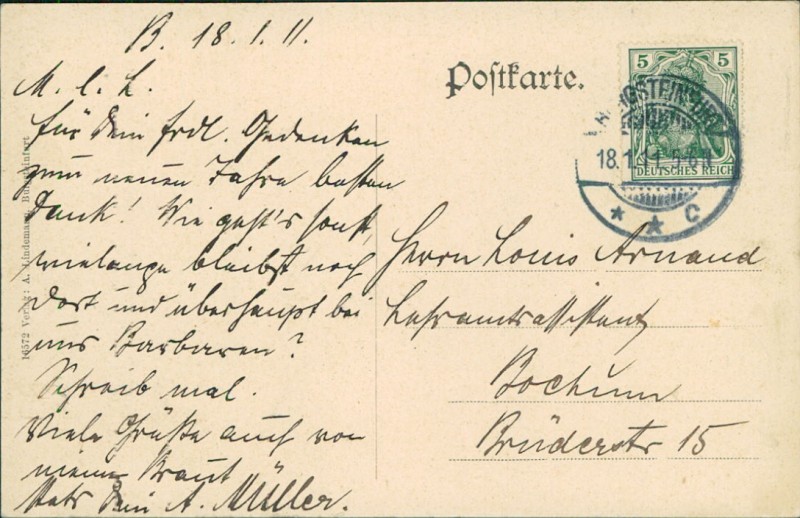 B. 18.1.11.
M. l. L.
Für Dein frdl. Gedenken
zum neuen Jahre besten
Dank! Wie geht's sonst,
wielange bleibst noch
dort und überhaupt bei
uns Barbaren?
Schreib mal.
Viele Grüße auch von
meiner Braut
Stets Dein A. Müller.
16572 Verlag: A. Lindemann, Burgsteinfurt
Postkarte.
5 5
DEUTSCHES REICH
BURGSTEINFURT
18.1.11. 5-6 N
* * C
Herrn Louis Arnaud
Lehramtsassistent
Bochum
Brüderstr 15